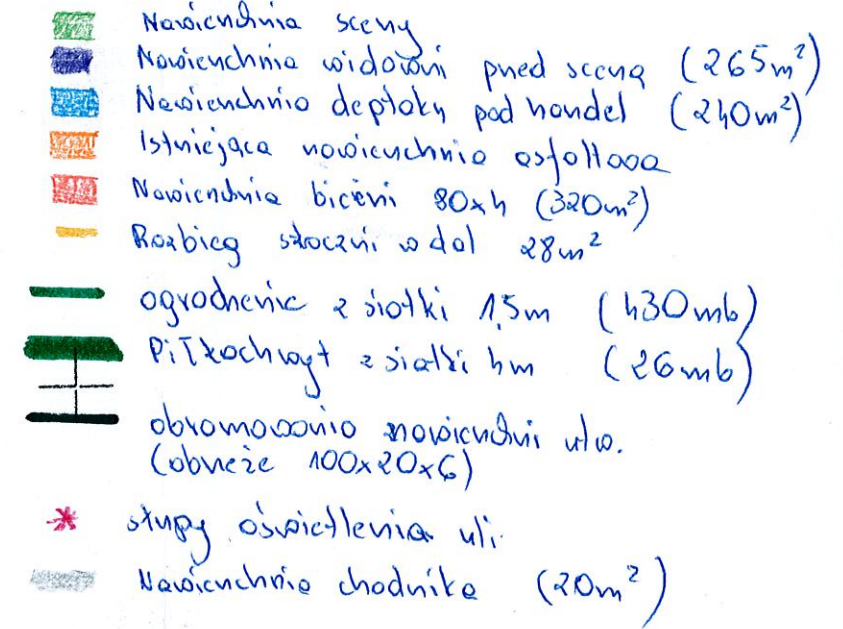 Nawierzchnia sceny
Nawierzchnia widowni przed sceną (265m²)
Nawierzchnia deptaku pod handel (240m²)
Istniejąca nawierzchnia asfaltowa
Nawierzchnia bieżni 80x4 (320m²)
Rozbieg skoczni w dal 28m²
ogrodzenie z siatki 1,5m (430mb)
Piłkochwyt z siatki 4m (26mb)
obramowanie nawierzchni utw.
(obrzeże 100x20x6)
słupy oświetlenia uli.
Nawierzchnia chodnika (20m²)